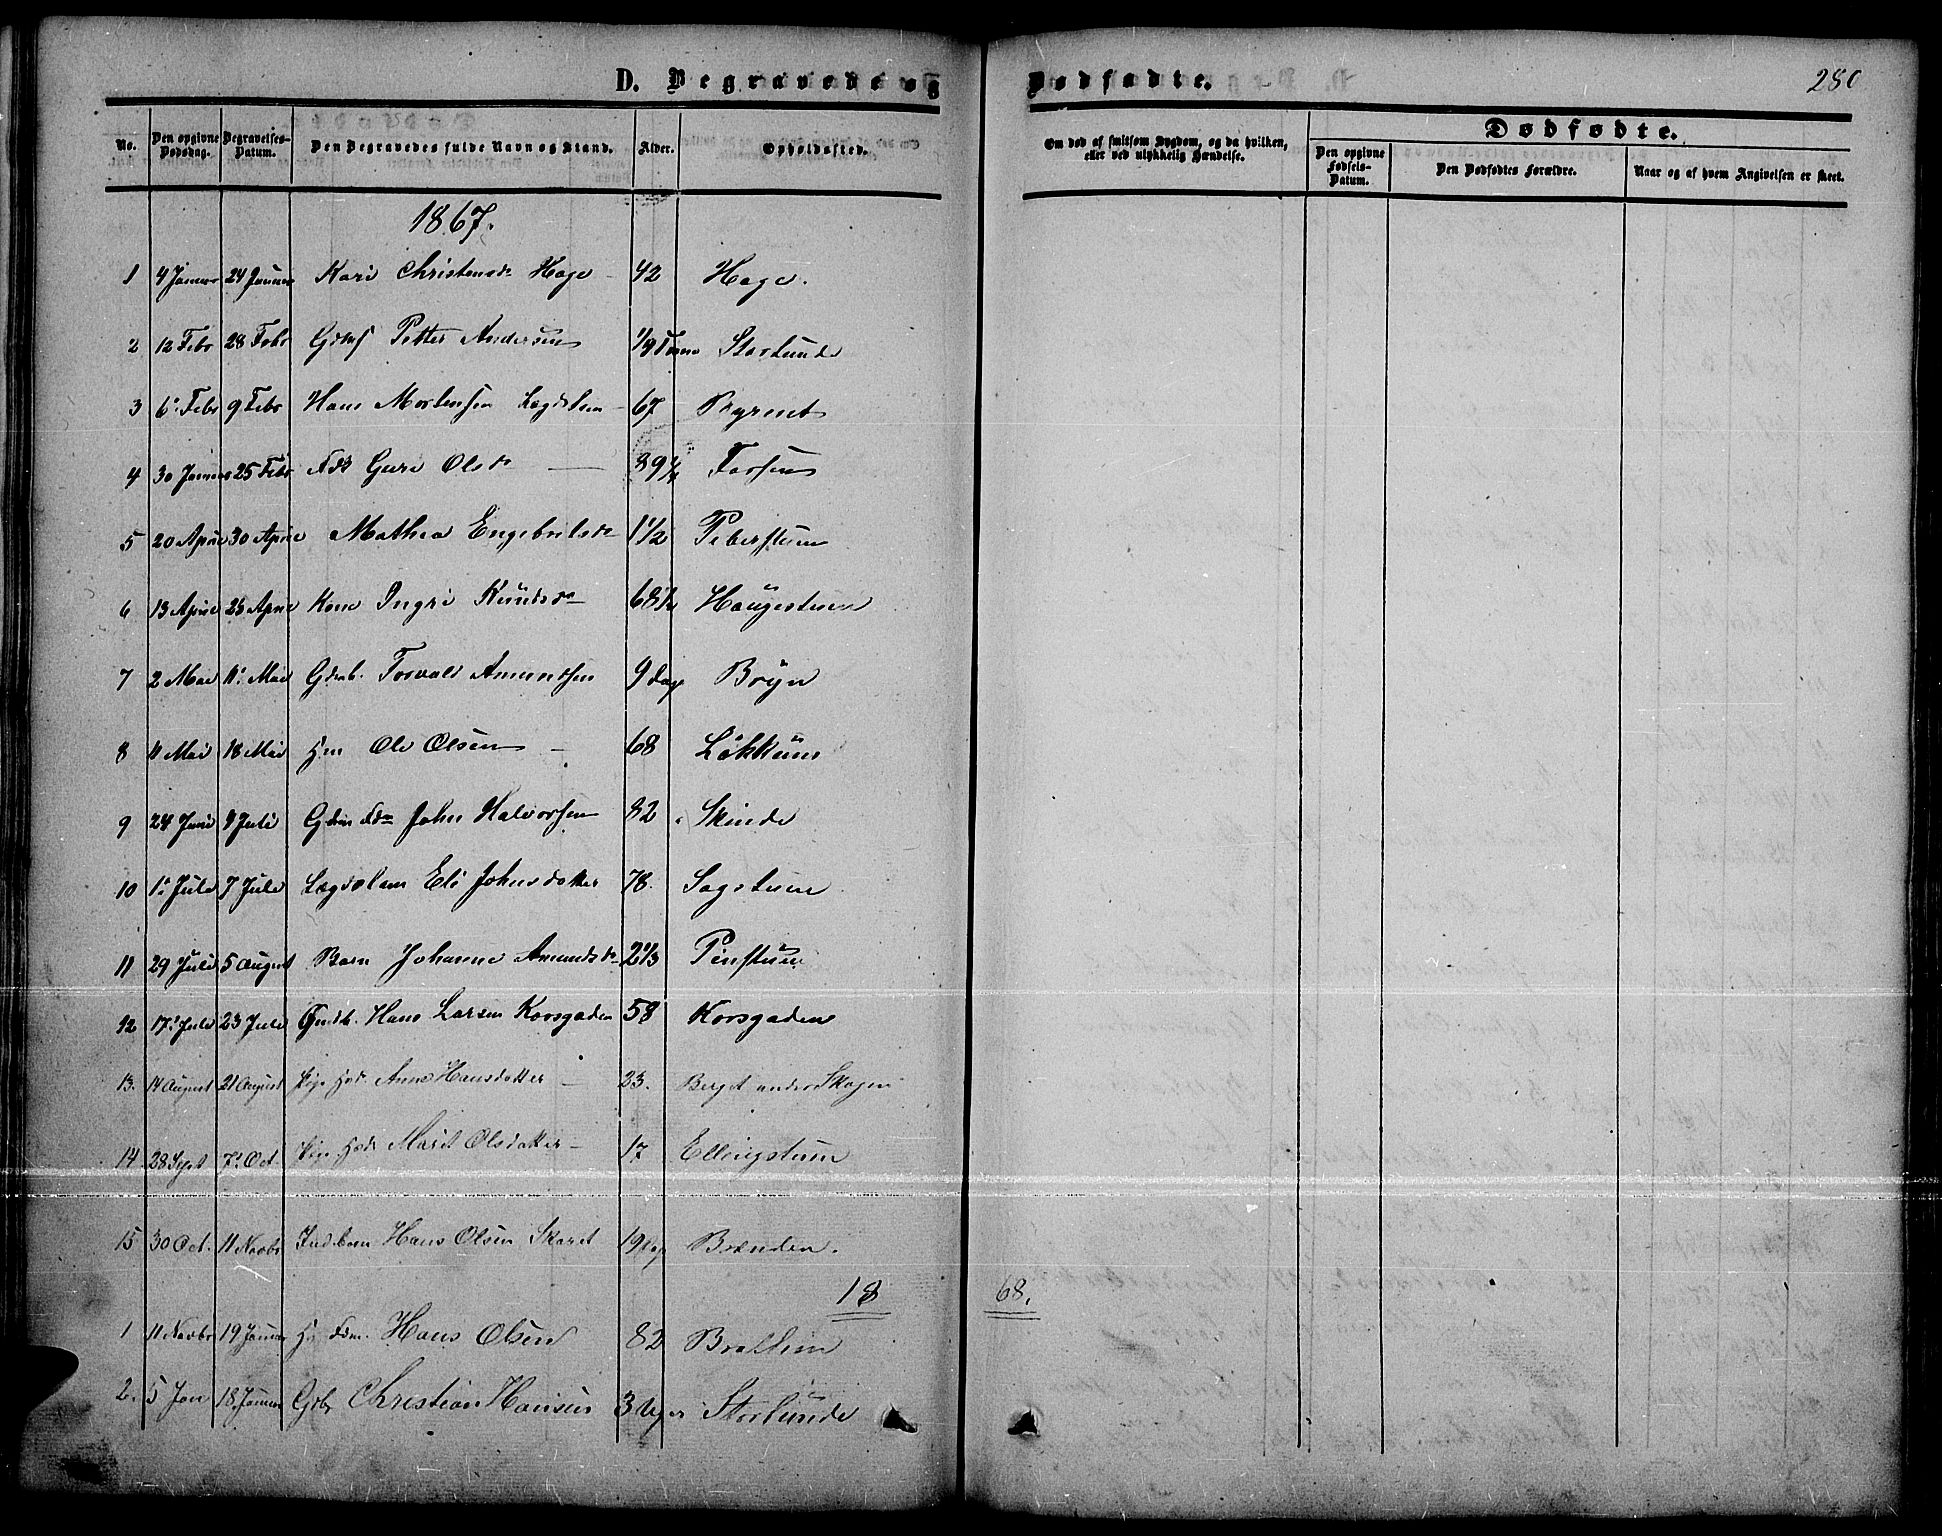 D. Begravede og Dødfødte.
280
No. Den opgivne Dødsdag. Begravelses-Datum. Den Begravedes fulde Navn og Stand. Alder. Opholdssted. Om død af smitsom Sygdom, og da hvilken, eller ved ulykkelig Hændelse.
Dødfødte.
Den opgivne Fødsels-Datum. Den Dødfødtes Forældre. Naar og af hvem Angivelsen er skeet.
1867.
1 4 Januar 24 Januar Kari Christensdr Hage 42 Hage.
2 12 Febr 28 Febr Petter Andersen Storlunde
3 6 Febr 9 Febr Hans Mortensen Lægdslem 67
4 30 Januar 25 Febr Guri Olsdr 89 Forsen
5 20 April 30 April Mathea Engebretsdr 1 1/2
6 13 April 25 April Kone Ingri Knudsdr 68 Haugestuen
7 2 Mai 11 Mai Gdmb. Torvald Amundsen 9 dage Böyn
8 11 Mai 18 Mai Ole Olsen 68 Lökken
9 24 Juni 9 Juli John Halvorsen 82 Skinde
10 1 Juli 7 Juli Lægdslem Eli Johnsdatter 78. Sagstuen
11 29 Juli 5 August Barn Johanne Amundsdr 2 1/3
12 17 Juli 23 Juli Hans Larsen Korsgaden 58 Korsgaden
13. 14 August 21 August Pige Anne Hansdatter 23. Berget under Skogen
14 28 Sept 7 Oct. Pige Marit Olsdatter 17 Ellingstuen
15 30 Oct. 11 Novbr Hans Olsen Skaret 19 Dage Brænden.
1868.
1 11 Novbr 19 Januar Hans Olsen 82
2. 5 Jan 18 Januar Christian Hansen 3 Uger Storlunde